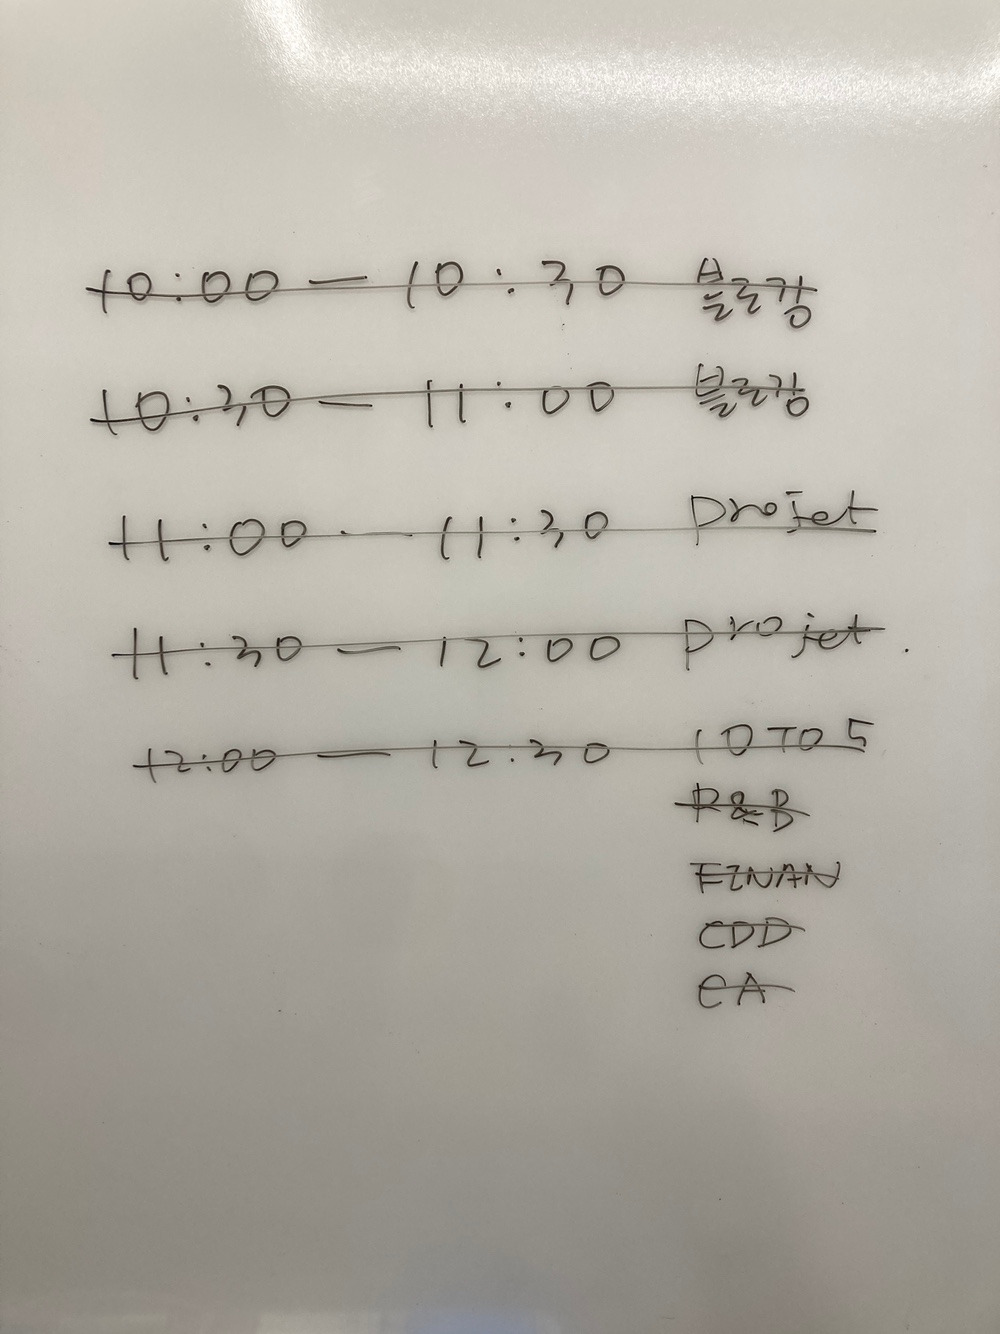 10:00 — 10:30 블로깅
10:30 — 11:00 블로깅
11:00 — 11:30 projet
11:30 — 12:00 projet.
12:00 — 12:30 10 TO 5
R&B
FINAN
CDD
CA